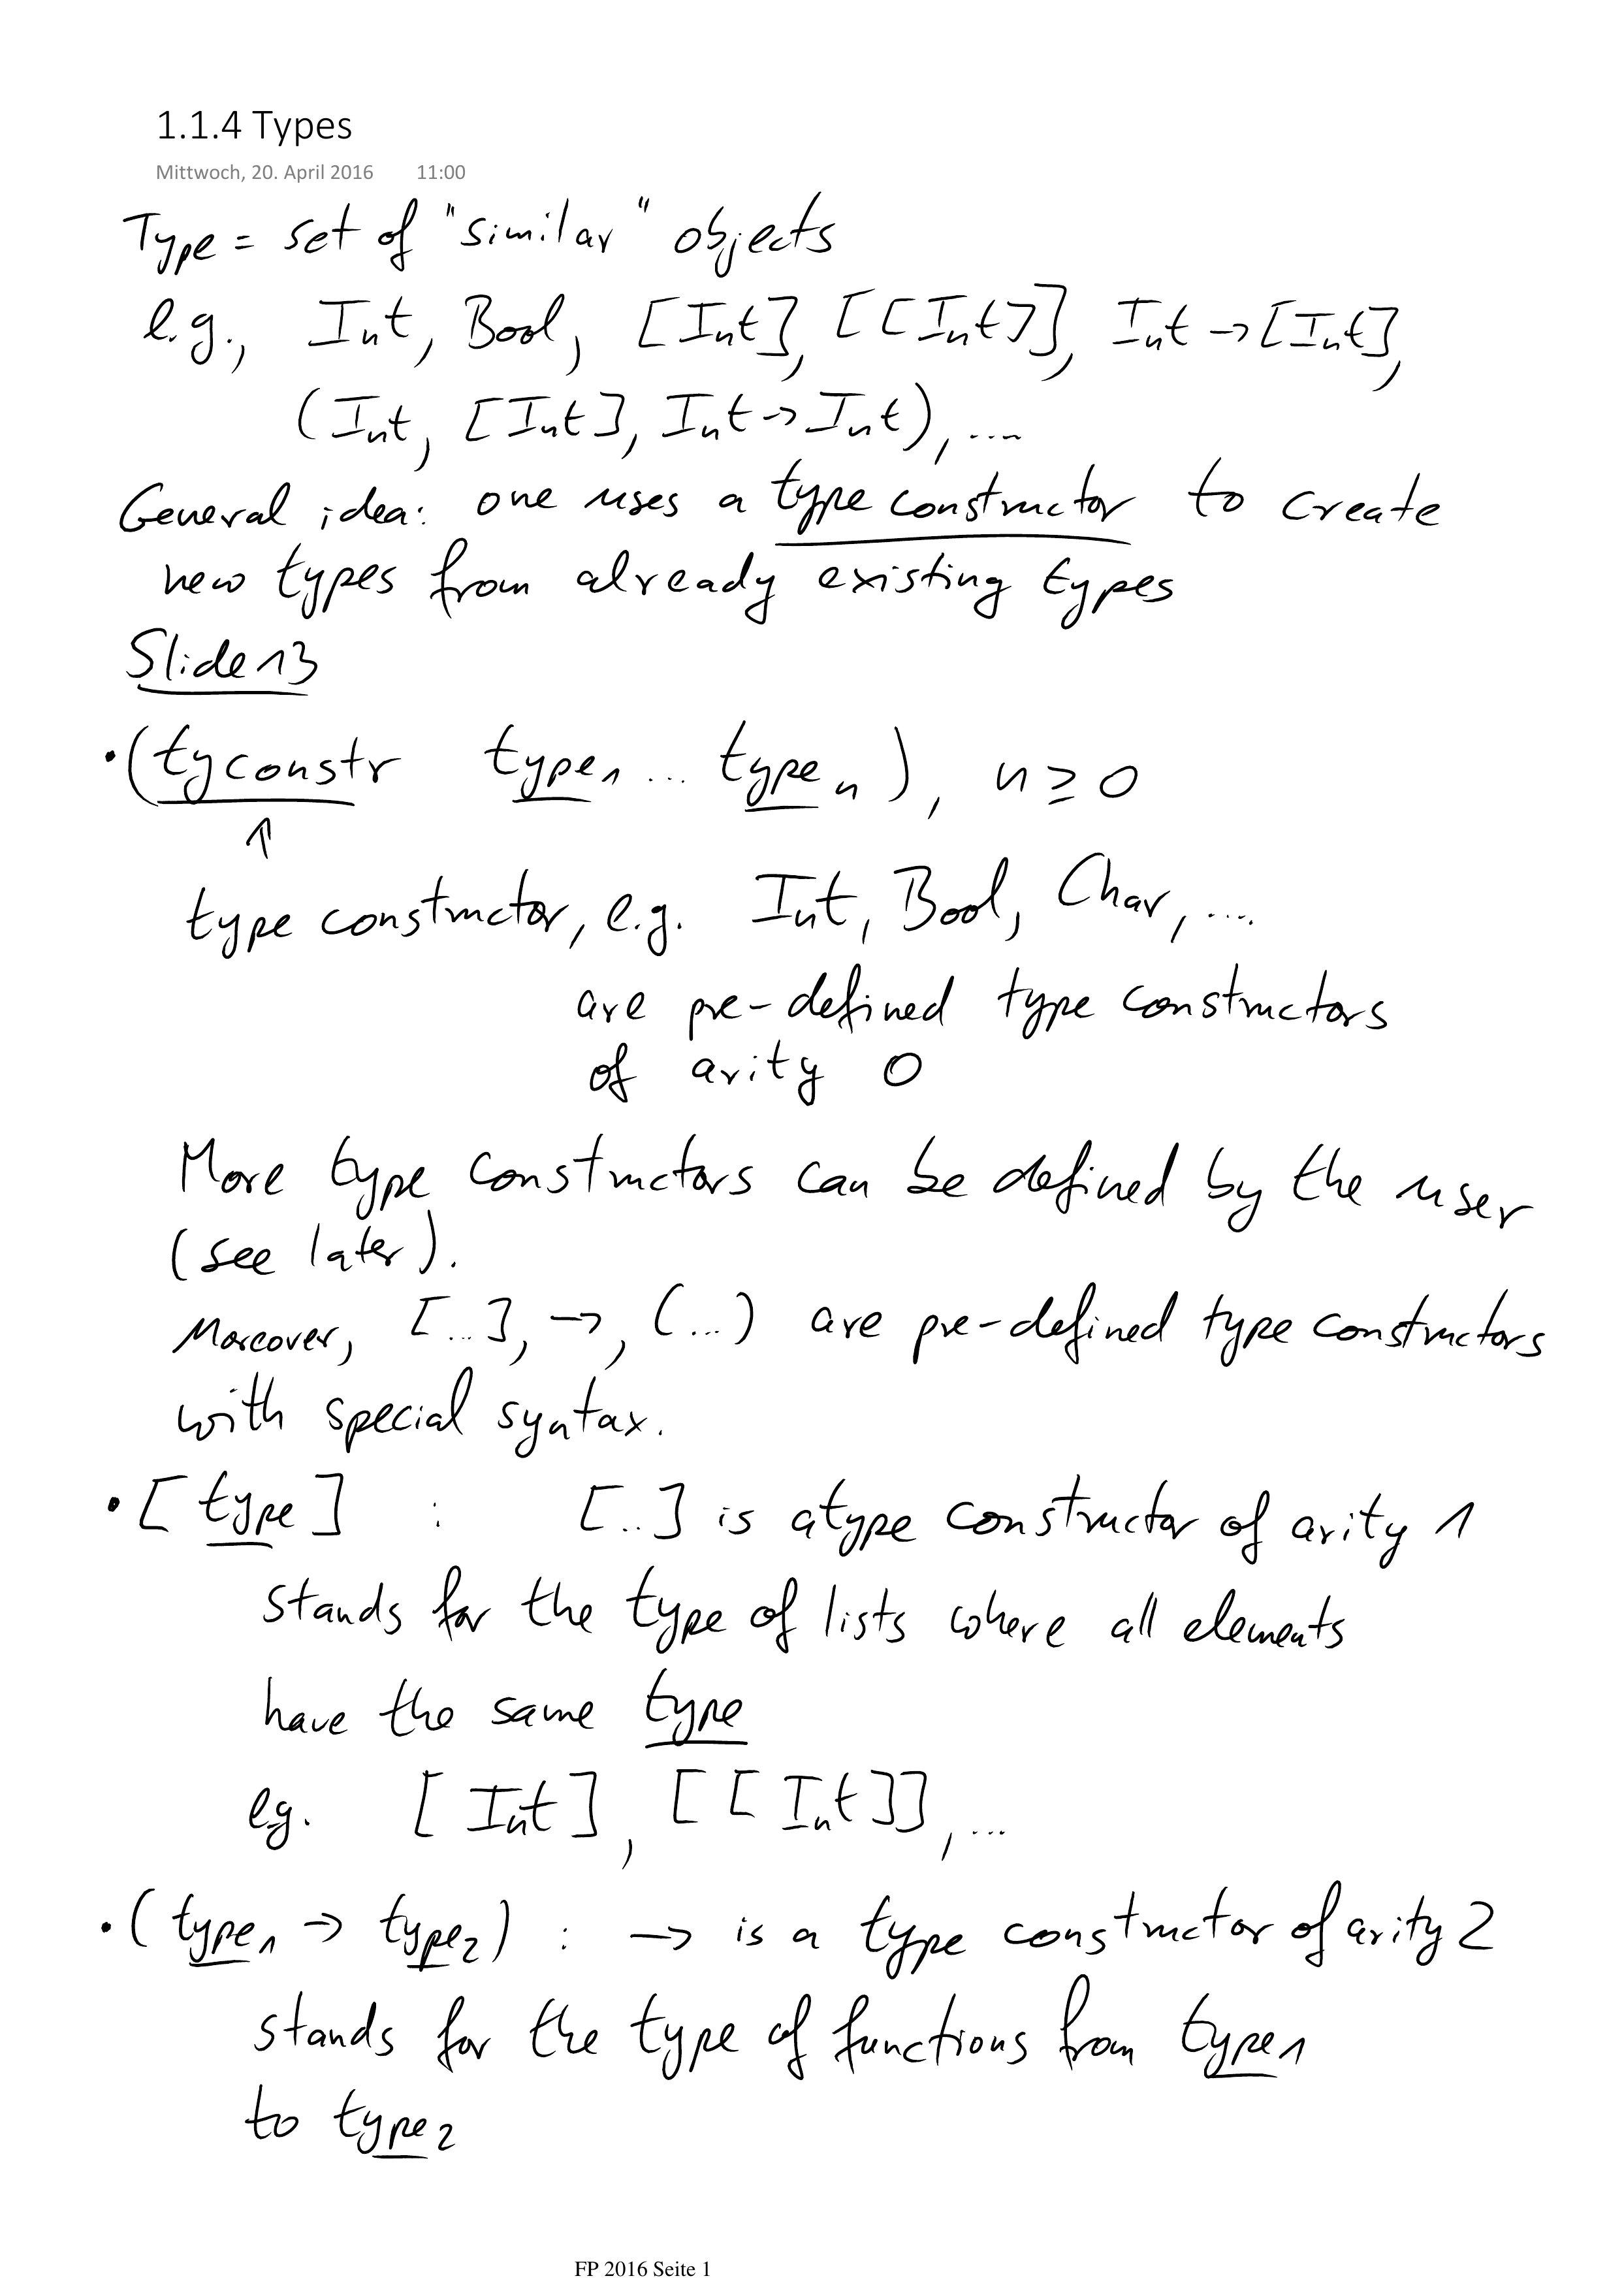 1.1.4 Types
Mittwoch, 20. April 2016 11:00
Type = set of "similar" objects
e.g., Int, Bool, [Int], [[Int]], Int → [Int],
(Int, [Int], Int → Int), ....
General idea: one uses a type constructor to create
new types from already existing types
Slide 13
• (tyconstr type₁ ... typeₙ), n ≥ 0
↑
type constructor, e.g. Int, Bool, Char, ....
are pre-defined type constructors
of arity 0
More type constructors can be defined by the user
(see later).
Moreover, [...], →, (...) are pre-defined type constructors
with special syntax.
• [type] : [..] is a type constructor of arity 1
stands for the type of lists where all elements
have the same type
eg. [Int], [[Int]], ...
• (type₁ → type₂) : → is a type constructor of arity 2
stands for the type of functions from type₁
to type₂
FP 2016 Seite 1